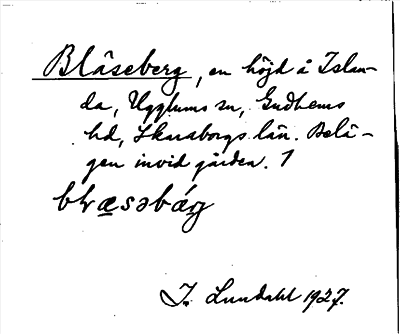 Blåseberg, en höjd å Islan-
da, Ugglums sn, Gudhems
hd, Skaraborgs län. Belä-
gen invid gården. 1
I. Lundahl 1927.